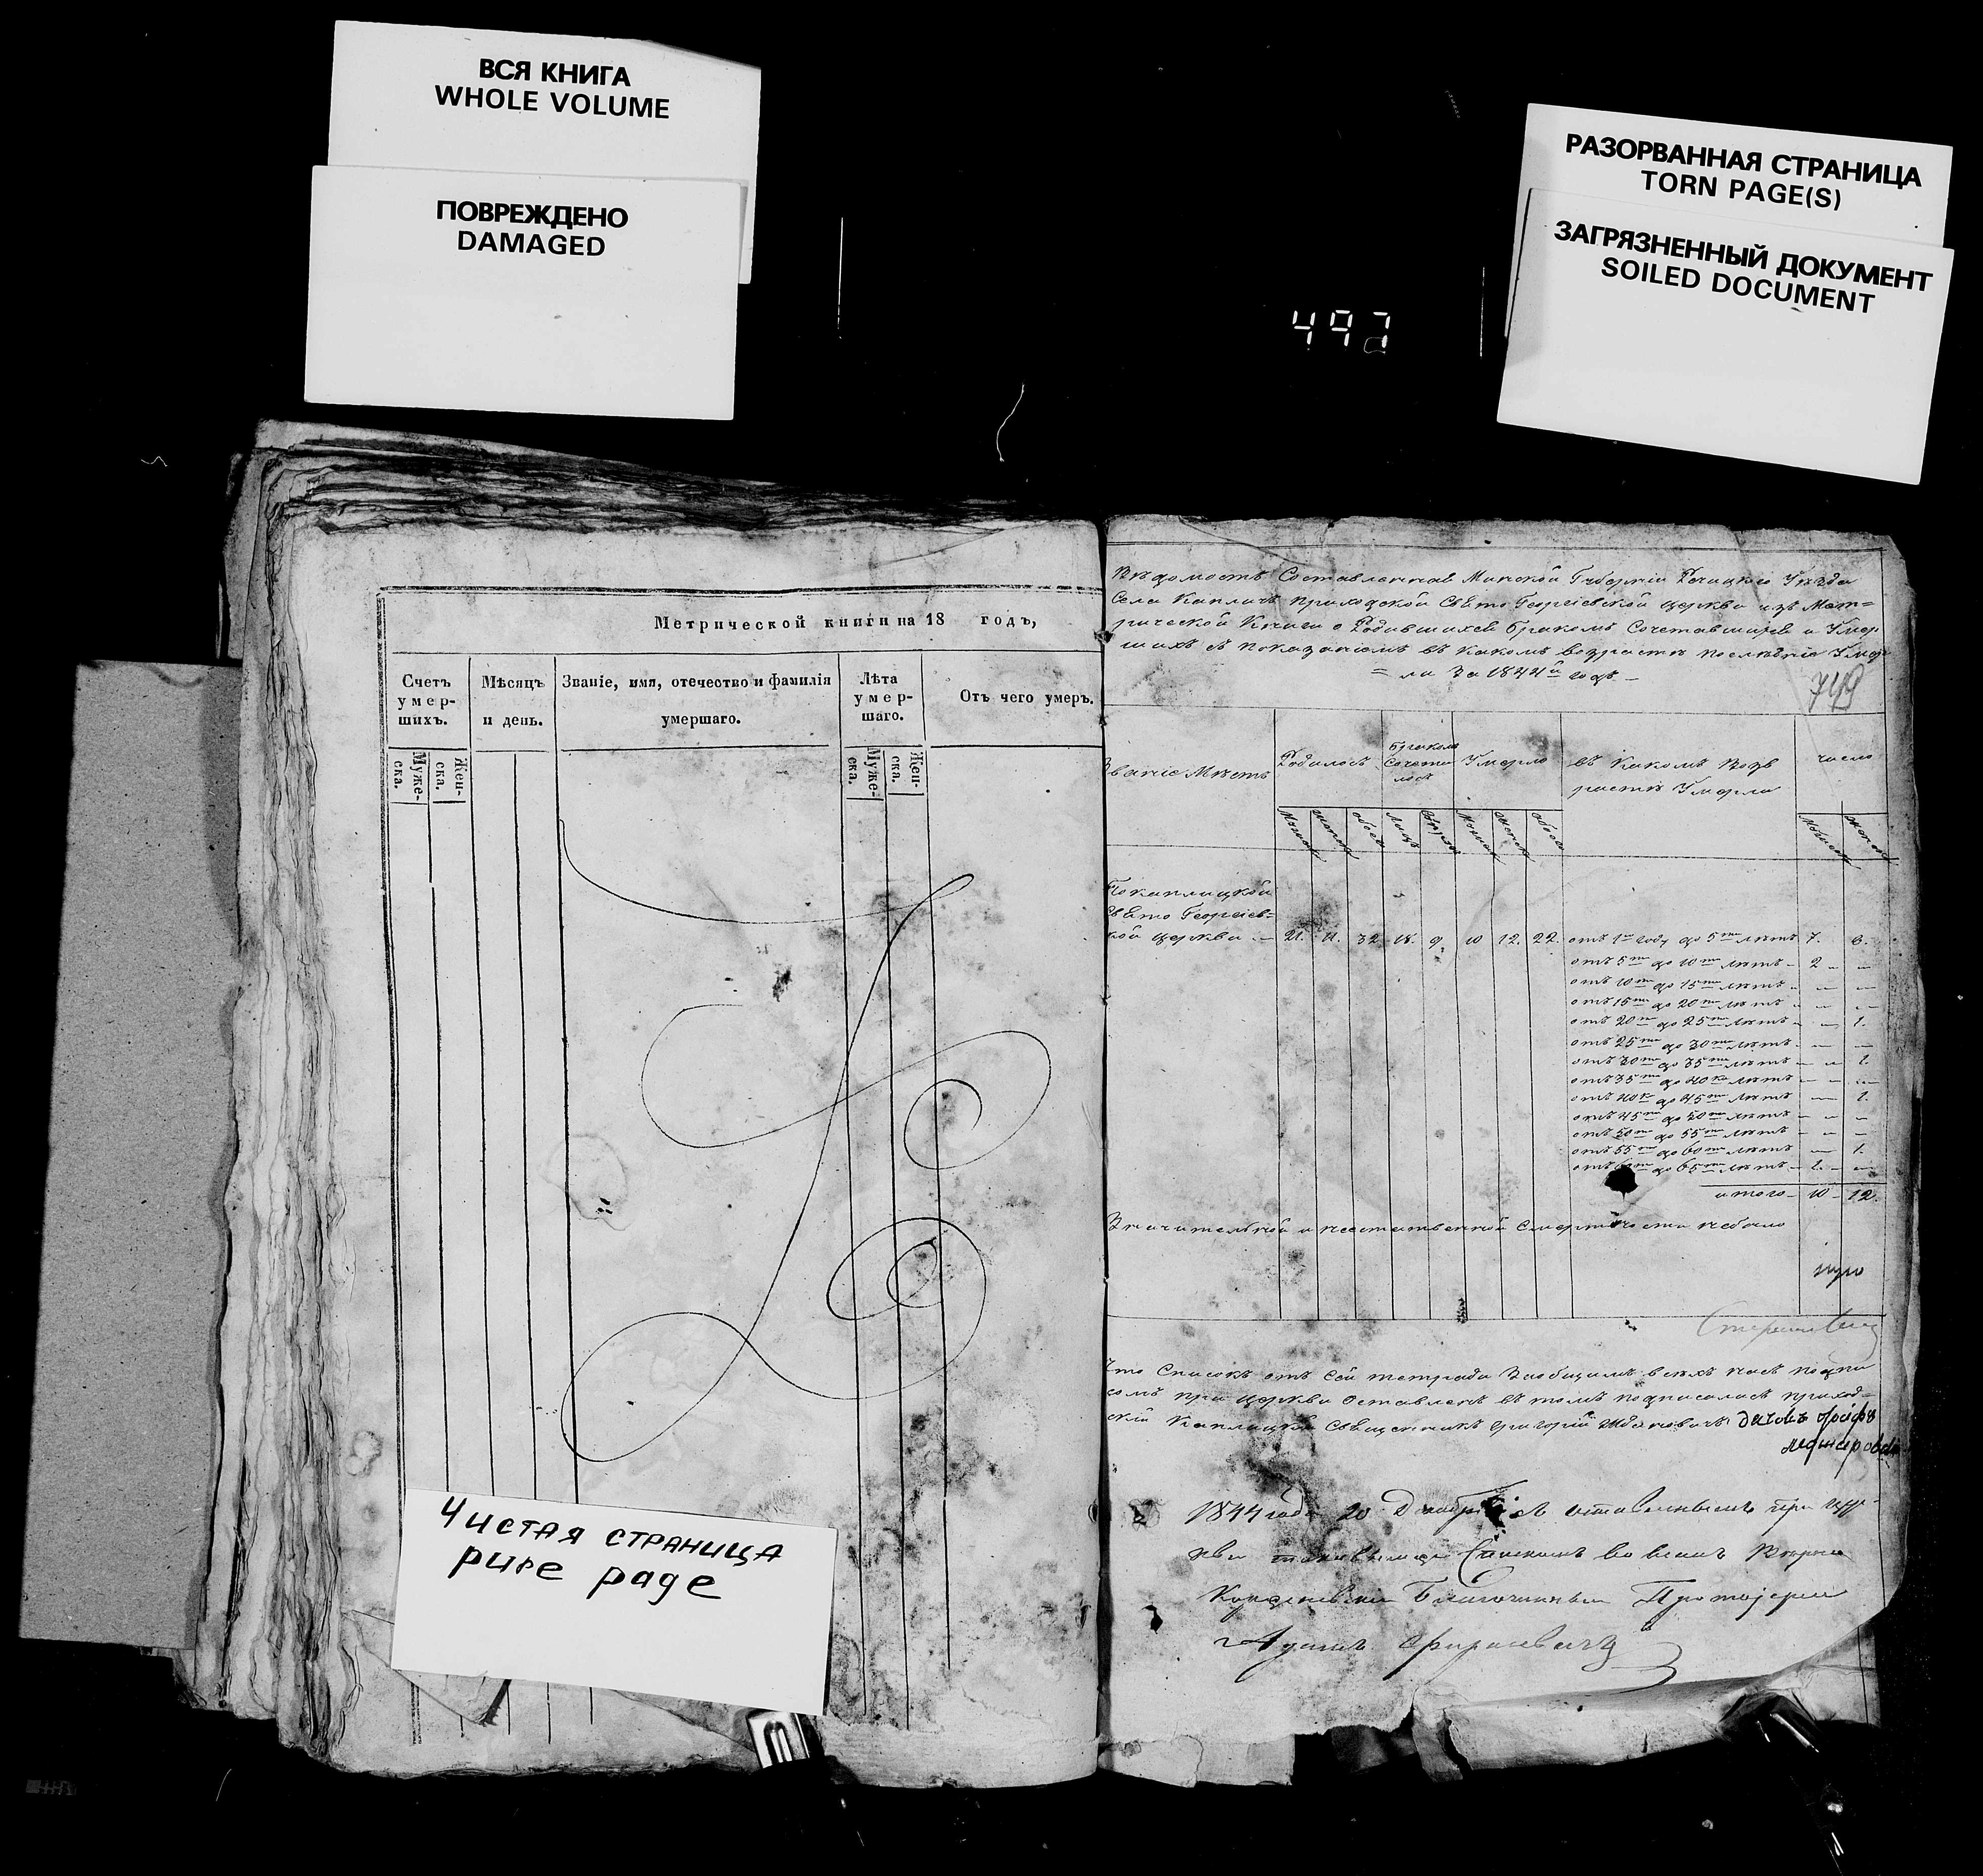 ВСЯ КНИГА
WHOLE VOLUME
ПОВРЕЖДЕНО
DAMAGED
РАЗОРВАННАЯ СТРАНИЦА
TORN PAGE(S)
ЗАГРЯЗНЕННЫЙ ДОКУМЕНТ
SOILED DOCUMENT
497
Метрической книги на 18 годъ,
Счетъ умер-
шихъ.
Муже-
ска.
Жен-
ска.
Мѣсяцъ
и день.
Званіе, имя, отечество и фамилія
умершаго.
Лѣта
умер-
шаго.
Муже-
ска.
Жен-
ска.
Отъ чего умеръ.
Чистая страница
pure page
Вѣдомость Составленная Минской Губерніи Речицкого Уѣзда
Села Капличъ приходской Свято Георгіевской церкви изъ Мет=
рической Книги о Родившихся бракомъ Сочетавшихся и Умер
шихъ съ показаніемъ въ каком возрасте последніе Умер
= ли За 1844й годъ –
749
Званіе Мѣстъ
Родилось
бракомъ
Сочета
лось
Умерло
въ Какомъ Воз
растѣ Умерли
число
По каплицкой
Свято Георгіев=
кой церкви – 21. 11. 32. 18. 9. 10 12. 22. отъ 1го году до 5ти лѣтъ 7. 8.
отъ 5ти до 10ти лѣтъ – 2 – –
отъ 10ти до 15ти лѣтъ – – –
отъ 15ти до 20ти лѣтъ – – –
отъ 20ти до 25ти лѣтъ – – 1.
отъ 25ти до 30ти лѣтъ – – –
отъ 30ти до 35ти лѣтъ – – 1.
отъ 35ти до 40ка лѣтъ – – –
отъ 40ка до 45ти лѣтъ – 1.
отъ 45ти до 50ти лѣтъ – – –
отъ 50ти до 55ти лѣтъ – – –
отъ 55ти до 60ти лѣтъ – 1.
отъ до 65ти лѣтъ – 1. –
итого – 10 – 12.
Значительной и неестественной Смертности небыло
Что Списокъ отъ сей тетради за общимъ всехъ насъ подпи
сомъ при церкви Оставленъ въ томъ подписались приход=
скій Каплицкій Священникъ Григорій дьячокъ
1844 года 20 Декабря съ оставленнымъ при цер-
кви таковымъ Спискомъ во всемъ
Благочинный Протоіерей